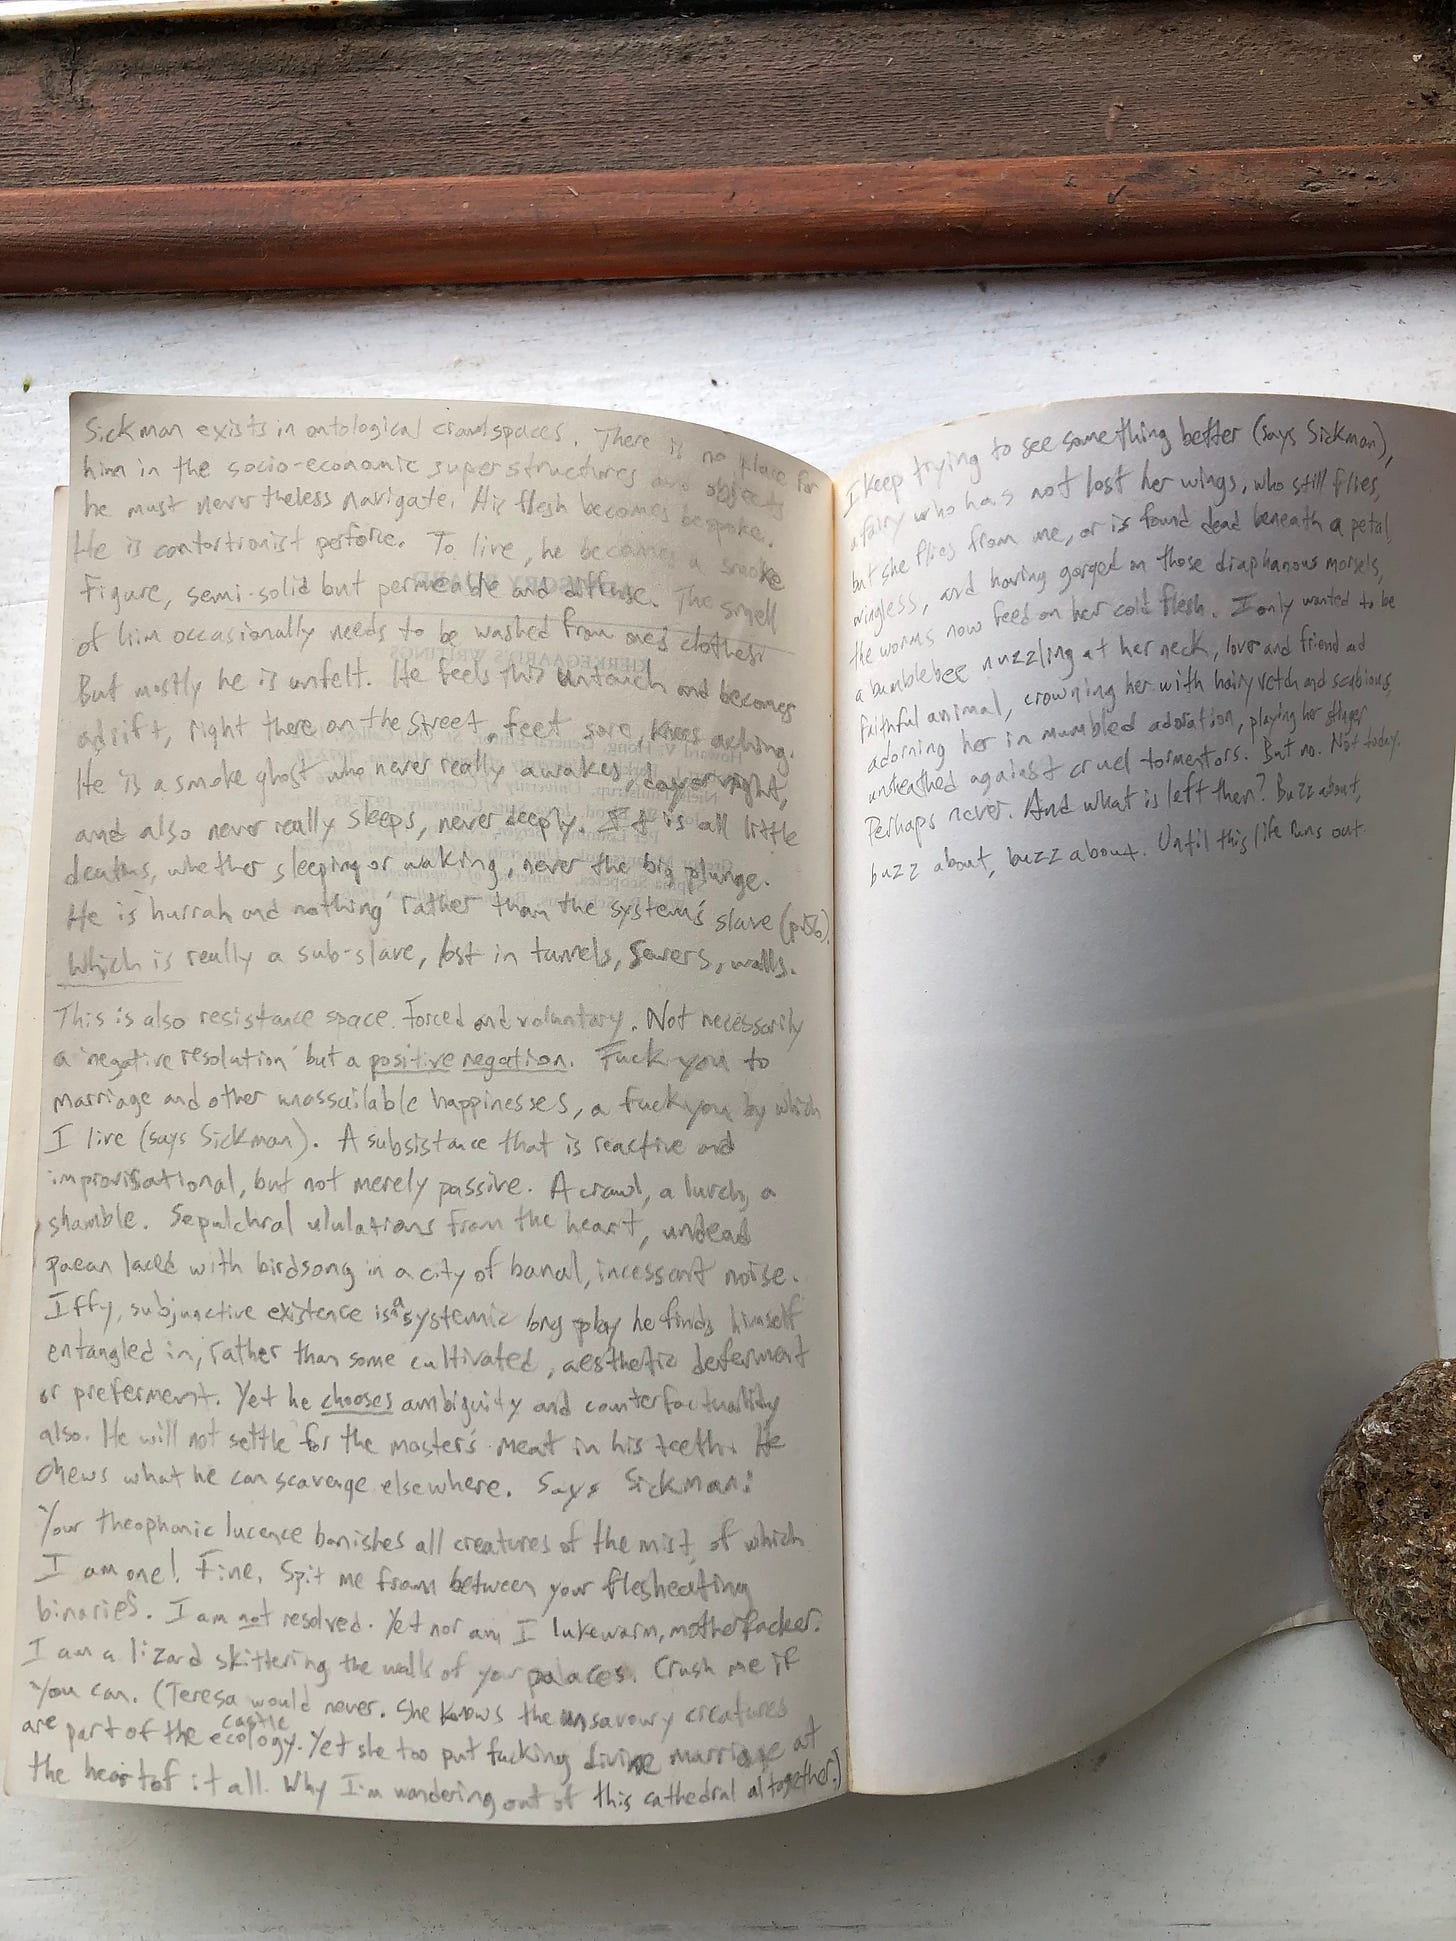 Sickman exists in ontological crawlspaces. There is no place for
him in the socio-economic superstructures and objects
he must nevertheless navigate. His flesh becomes bespoke.
He is contortionist perforce. To live, he becomes a smoke
figure, semi-solid but permeable and diffuse. The smell
of him occasionally needs to be washed from one's clothes.
But mostly he is unfelt. He feels this untouch and becomes
adrift, right there on the street, feet sore, knees aching.
He is a smoke ghost who never really awakes, day or night,
and also never really sleeps, never deeply. It is all little
deaths, whether sleeping or waking, never the big plunge.
He is 'hurrah and nothing' rather than the system's slave (p. 56).
Which is really a sub-slave, lost in tunnels, sewers, walls.
This is also resistance space. Forced and voluntary. Not necessarily
a 'negative resolution' but a positive negation. Fuck you to
marriage and other unassailable happinesses, a fuck you by which
I live (says Sickman). A subsistance that is reactive and
improvisational, but not merely passive. A crawl, a lurch, a
shamble. Sepulchral ululations from the heart, undead
paean laced with birdsong in a city of banal, incessant noise.
Iffy, subjunctive existence is a systemic long play he finds himself
entangled in, rather than some cultivated, aesthetic deferment
or preferment. Yet he chooses ambiguity and counterfactuality
also. He will not settle for the master's meat in his teeth. He
chews what he can scavenge elsewhere. Says Sickman:
Your theophanic lucence banishes all creatures of the mist, of which
I am one! Fine. Spit me from between your flesheating
binaries. I am not resolved. Yet nor am I lukewarm, motherfucker.
I am a lizard skittering the walls of your palaces. Crush me if
you can. (Teresa would never. She knows the unsavoury creatures
are part of the castle ecology. Yet she too put fucking divine marriage at
the heart of it all. Why I'm wandering out of this cathedral altogether.)
I keep trying to see something better (says Sickman),
a fairy who has not lost her wings, who still flies,
but she flies from me, or is found dead beneath a petal,
wingless, and having gorged on those diaphanous morsels,
the worms now feed on her cold flesh. I only wanted to be
a bumblebee nuzzling at her neck, lover and friend and
faithful animal, crowning her with hairy vetch and scabious,
adorning her in mumbled adoration, playing her stinger
unsheathed against cruel tormentors. But no. Not today.
Perhaps never. And what is left then? Buzz about,
buzz about, buzz about. Until this life runs out.